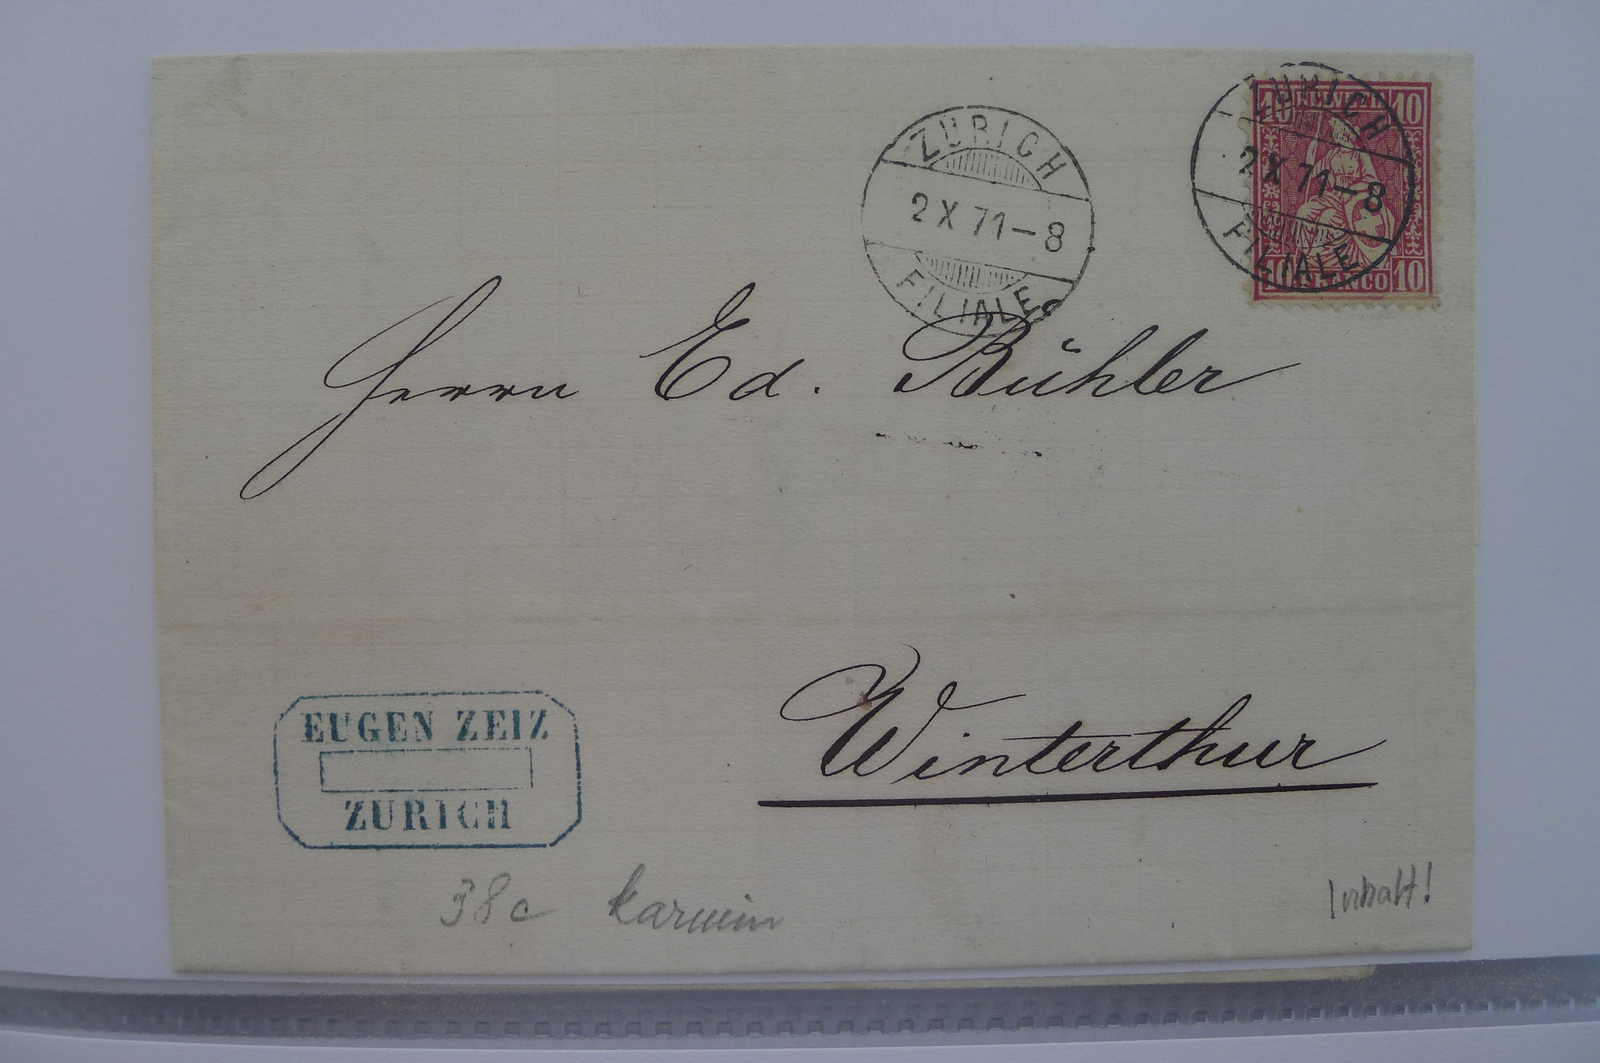 ZURICH
2 X 71–8
FILIALE
ZURICH
2 X 71–8
FILIALE
10 HELVETIA 10
10 FRANCO 10
Herrn Ed. Bühler
Winterthur
EUGEN ZEIZ
ZURICH
38c karmin
Inhalt!